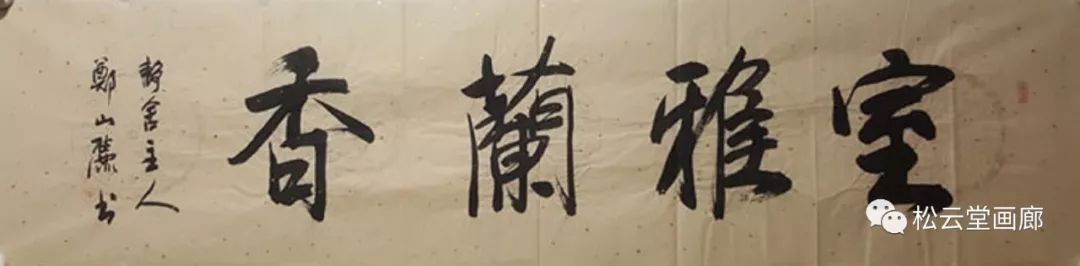 室雅蘭香
靜舍主人
鄭山麓书
松云堂画廊